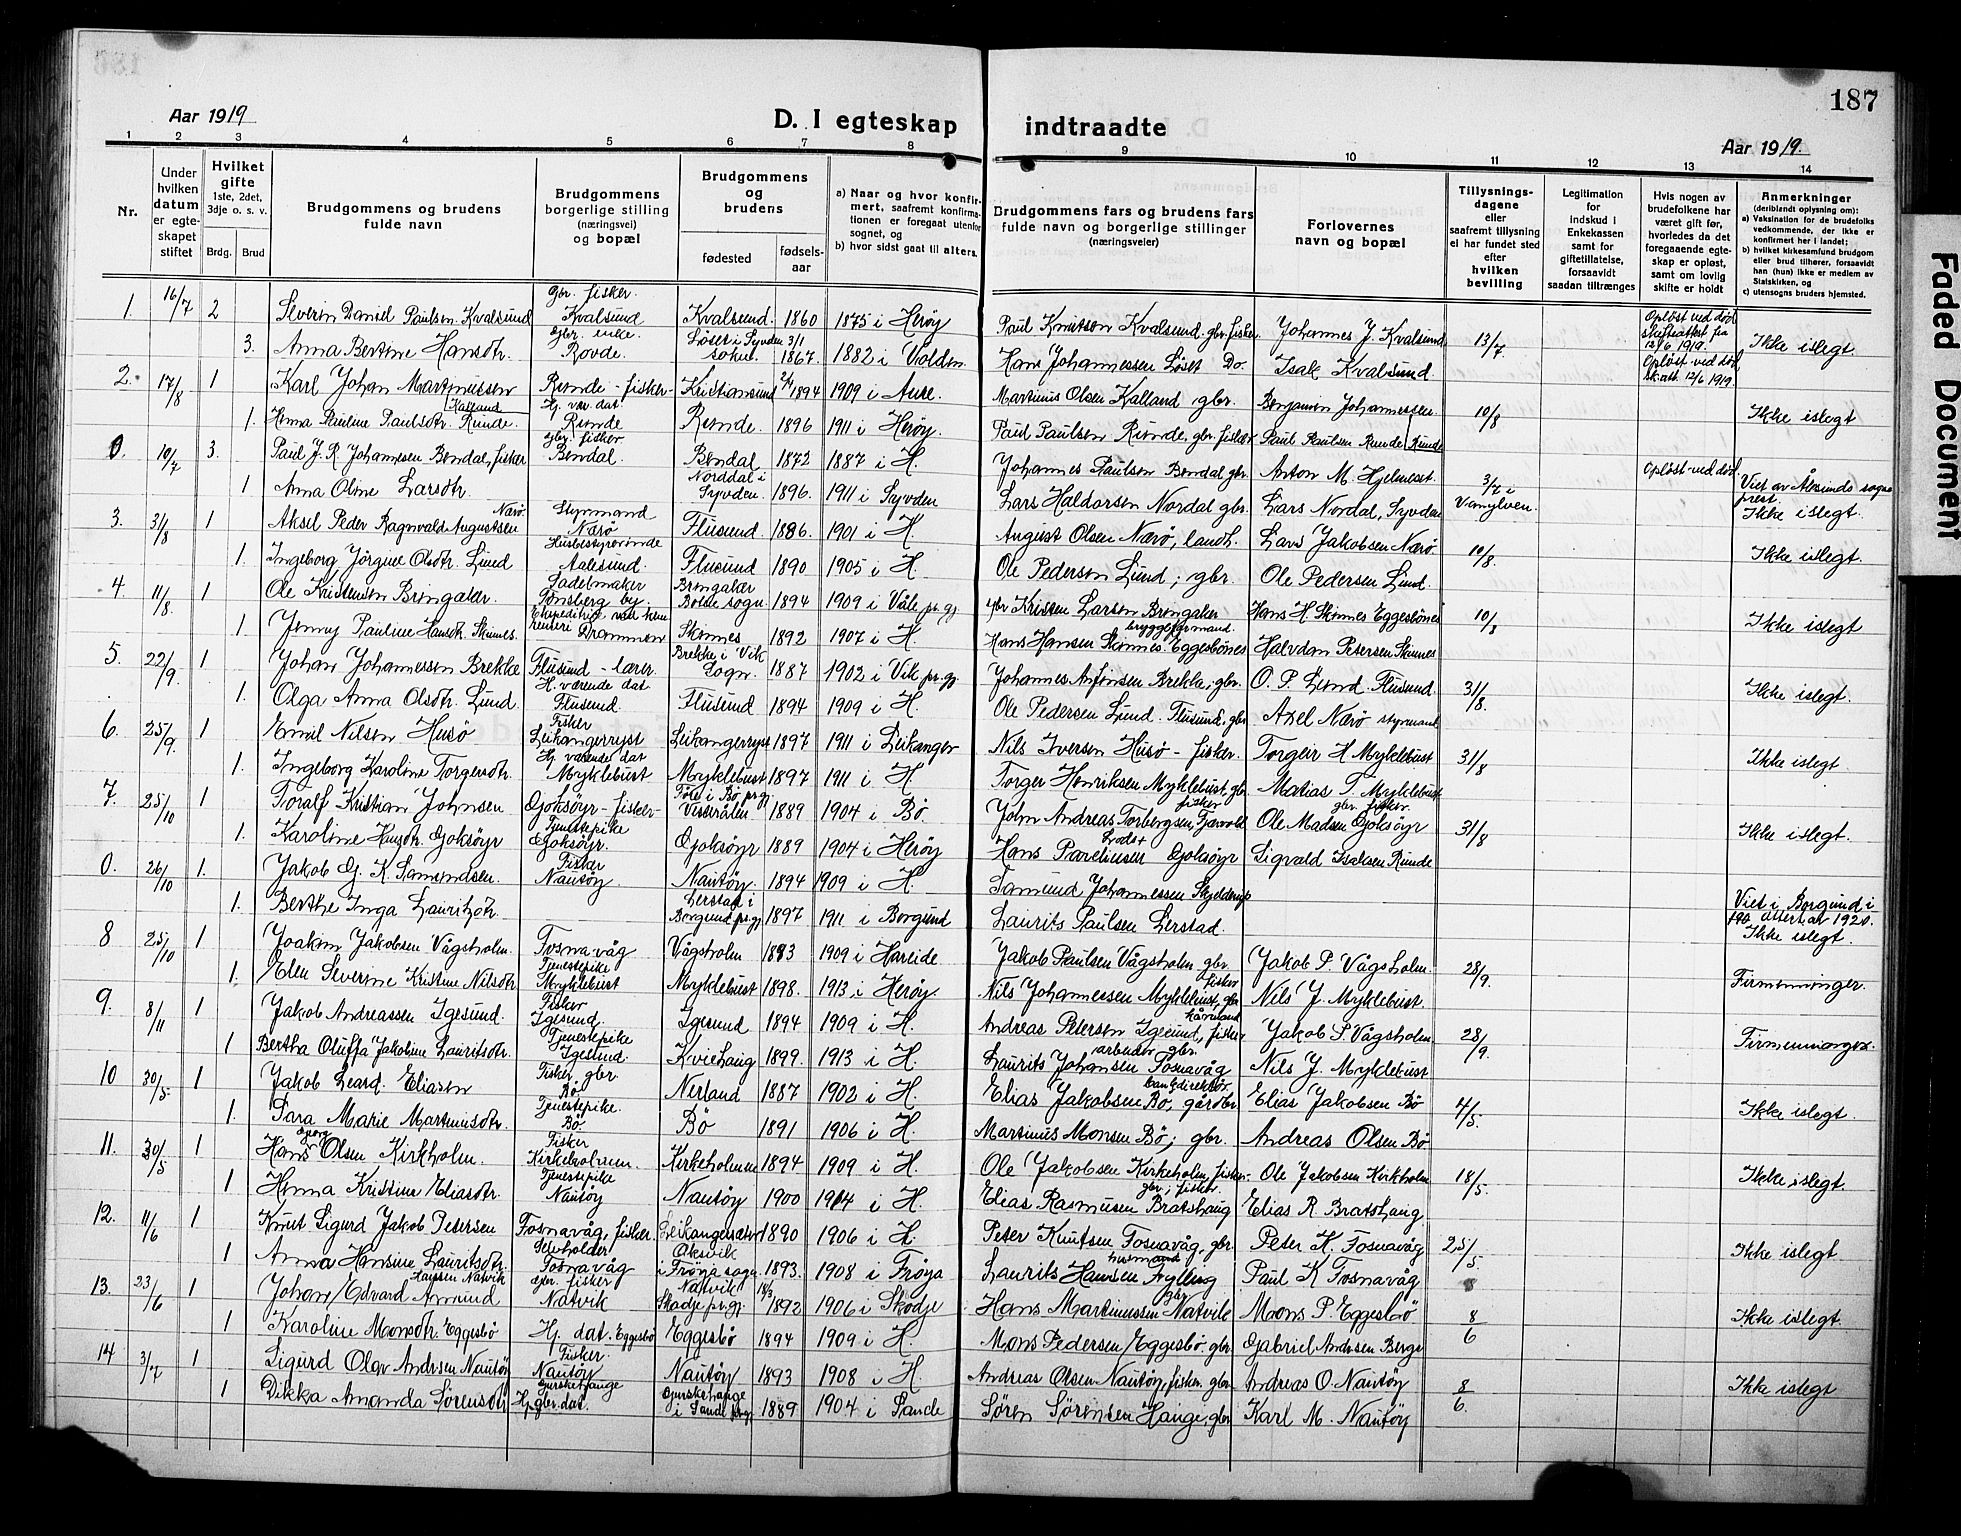 187
Aar 1919
D. I egteskap indtraadte
Aar 1919.
1 2 3 4 5 6 7 8 9 10 11 12 13 14
Nr.
Under hvilken datum er egteskapet stiftet
Hvilket gifte 1ste, 2det, 3dje o. s. v.
Brdg. Brud
Brudgommens og brudens fulde navn
Brudgommens borgerlige stilling (næringsvei) og bopæl
Brudgommens og brudens
fødested fødselsaar
a) Naar og hvor konfirmert, saafremt konfirmationen er foregaat utenfor sognet, og
b) hvor sidst gaat til alters.
Brudgommens fars og brudens fars fulde navn og borgerlige stillinger (næringsveier)
Forlovernes navn og bopæl
Tillysningsdagene eller saafremt tillysning ei har fundet sted efter hvilken bevilling
Legitimation for indskud i Enkekassen samt for giftetillatelse, forsaavidt saadan tiltrænges
Hvis nogen av brudefolkene har været gift før, hvorledes da det foregaaende egteskap er opløst, samt om lovlig skifte er holdt
Anmerkninger (deriblandt oplysning om):
a) Vaksination for de brudefolks vedkommende, der ikke er konfirmert her i landet;
b) hvilket kirkesamfund brudgom eller brud tilhører, forsaavidt han (hun) ikke er medlem av Statskirken, og
c) utensogns bruders hjemsted.
1. 16/7 2 Severin Daniel Paulsen Kvalsund gbr. fisker. Kvalsund Kvalsund. 1860 1875 i Herøy Paul Knutsen Kvalsund. gbr. fisker Johannes J. Kvalsund 13/7 Opløst ved død. Skifteattest fra 12/6 1919. Ikke islegt.
3. Anna Bertine Hansdtr. gbr. enke. Rovde. Løset i Syvden sokn. 3/1 1867. 1882 i Volden Hans Johannessen Løset Do. Isak Kvalsund. Opløst ved død Sk. att. 12/6 1919.
2. 17/8 1 Karl Johan Martinussen Kalland Runde - fisker Kristiansund 1894 1909 i Aure. Martinus Olsen Kalland, gbr. Benjamin Johannessen Runde 10/8 Ikke islegt.
1. Anna Pauline Paulsdtr. Runde. Hj. vær. dat. Runde Runde. 1896 1911 i Herøy. Paul Paulsen Runde, gbr. fisker Paul Paulsen Runde
0. 10/7 3. Paul J. R. Johannesen Bendal, fisker gbr. fisker Bendal. Bendal 1872 1887 i H. Johannes Paulsen Bendal gbr. Anton M. Hjelmeset. 3/7 i Vanylven. Opløst ved død. Viet av Ålesunds sogneprest. Ikke islegt.
1 Anna Oline Larsdtr. Norddal i Syvden. 1896. 1911 i Syvden Lars Haldorsen Nordal gbr. Lars Nordal, Syvden
3. 31/8 1 Aksel Peder Ragnvald Augustsen Nærø. Styrmand Nærø Flusund. 1886. 1901 i H. August Olsen Nærø, landh. Lars Jakobsen Nærø. 10/8. Ikke islegt.
1. Ingeborg Jørgine Olsdtr. Lund Husbestyrerinde Aalesund. Flusund 1890 1905 i H Ole Pedersen Lund; gbr. Ole Pedersen Lund.
4. 11/8. 1 Ole Kristensen Bringaker. Sadelmaker Tønsberg by. Bringaker Botne sogn. 1894 1909 i Våle pr.gj. gbr Kristen Larsen Bringaker Hans H. Skinnes Eggesbönes 10/8 Ikke islegt
1 Jenny Pauline Hansdtr. Skinnes. Drammen Skinnes 1892 1907 i H. Hans Hansen Skinnes. Eggesbönes bryggeformand. Halvdan Petersen Skinnes
5. 22/9. 1 Johan Johannessen Brekke Flusund - lærer. Brekke i Vik Sogn. 1887 1902 i Vik pr.gj. Johannes Anfinsen Brekke, gbr. O. P. Lund. Flusund. 31/8. Ikke islegt.
1. Olga Anna Olsdtr. Lund. H. værende dat Flusund. Flusund 1894 1909 i H. Ole Pedersen Lund. Flusund. gbr Axel Nærø styrmand
6. 25/9. 1 Emil Nilsen Husö Fisker Leikangerryst Leikangerryst 1897 1911 i Leikanger Nils Iversen Husö - fisker. Torgeir H Myklebust 31/8 Ikke islegt.
1. Ingeborg Karoline Torgersdtr. Hj. værende dat Myklebust Myklebust 1897 1911 i H. Torger Henriksen Myklebust, gbr. Matias T. Myklebust
7. 25/10 1 Toralf Kristian Johnsen Gjoksöyr - fisker - Bø pr.gj. Vesterålen 1889 1904 i Bø. John Andreas Torbergsen, fisker Ole Madsen Gjoksöyr gbr. fisker. 31/8 Ikke islegt.
1. Karoline Hansdtr. Gjoksöyr Tjenestepike Gjoksöyr. Gjoksöyr 1889 1904 i Herøy Hans Pareliusen Gjoksöyr Sigvald Isaksen Runde
0. 26/10 1. Jakob G. K. Samundsen. Fisker Nautöy. Nautöy. 1894 1909 i H. Samund Johannessen Skjelderup Viet i Borgund i flg. attest av 1920. Ikke islegt.
1. Berthe Inga Lauritzdtr. Lerstad i Borgund pr.gj. 1897 1911 i Borgund Laurits Paulsen Lerstad.
8 25/10 1 Joakim Jakobsen Vågsholm. Fosnavåg Vågsholm 1893 1909 i Hareide Jakob Paulsen Vågsholm gbr. Jakob P. Vågsholm. 28/9. Firmenninger.
1. Elen Severine Kristine Nilsdtr Tjenestepike Myklebust Myklebust 1898. 1913 i Herøy. Nils Johannessen Myklebust, gbr fisker Nils J. Myklebust.
9. 8/11 1 Jakob Andreassen Igesund. Fisker Igesund. Igesund 1894 1909 i H. Andreas Petersen Igesund, fisker Jakob P. Vågsholm 28/9. Firmenninger.
1 Bertha Oluffa Jakobine Lauritsdtr. Tjenestepike Igesund. Kviehaug 1899. 1913 i H. Laurits Johansen Fosnavåg arbeider gbr. Nils J. Myklebust
10 30/5. 1 Jakob Leard. Eliasen Fisker gbr. Bø. Nerland 1887 1902 i H. Elias Jakobsen Bø, gårdbr Elias Jakobsen Bø 4/5. Ikke islegt.
1. Sara Marie Martinusdtr. Tjenestepike. Bø Bø 1891 1906 i H. Martinus Monsen Bø; gbr. Andreas Olsen Bø
11. 30/5 1 Hans Georg Olsen Kirkholm. Fisker Kirkeholmen. Kirkeholmen 1894 1909 i H. Ole Jakobsen Kirkeholm, fisker. Ole Jakobsen Kirkholm 18/5. Ikke islegt.
1 Hanna Kristine Eliasdtr. Tjenestepike Nautöy Nautöy 1900 1914 i H. Elias Rasmusen Bratshaug gbr; fisker. Elias R. Bratshaug
12. 11/6 1 Knut Sigurd Jakob Petersen Fosnavåg, fisker. Leikangersæter 1890 1906 i H. Peter Knutsen Fosnavåg, gbr. Peter K. Fosnavåg 25/5. Ikke islegt.
1 Anna Hansine Lauritsdtr. Fosnavåg Oksvik i Frøya sogn. 1893. 1908 i Frøya Laurits Hansen Fylling husmand Paul K Fosnavåg
13. 23/6 1 Johan Edvard Amund Hansen Natvik gbr. fisker Natvik Natvik Skodje pr.gj. 1892 1906 i Skodje Hans Martinussen Natvik gbr. Mons P. Eggesbö 8/6 Ikke islegt.
1 Karoline Monsdtr. Eggesbö Hj. dat. Eggesbö Eggesbö 1894 1909 i H. Mons Pedersen Eggesbö. gbr. Gabriel Andrsen Berge
14 3/7 1 Sigurd Olav Andrsen Nautöy Fisker. Nautöy Nautöy 1893 1908 i H Andreas Olsen Nautöy, fisker gbr. Andreas O. Nautöy 8/6. Ikke islegt
1 Rikka Amanda Sörensdtr Gjurskehauge Hj. gbr. dat. Gjurskehauge i Sande pr.gj. 1889 1904 i Sande Sören Sörensen Hauge, gbr Karl M. Nautöy
Faded Document